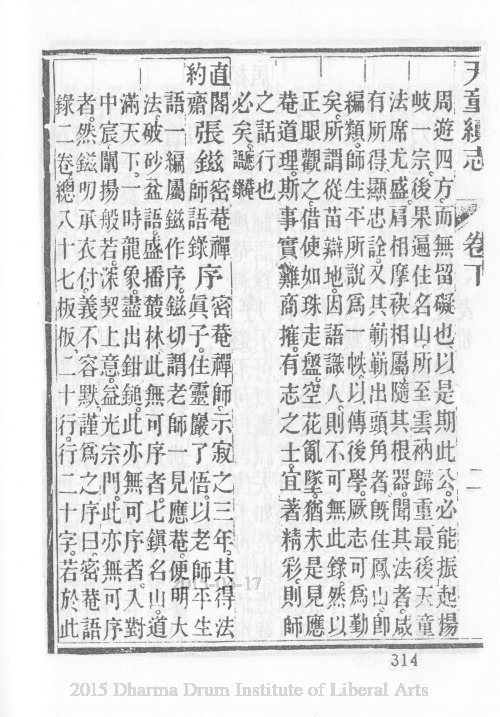 天童續志　卷下　二
周遊四方。而無留礙也。以是期此公。必能振起楊
岐一宗。後果遍住名山。所至雲衲歸重。最後天童
法席尤盛。肩相摩秧相屬。隨其根器。聞其法者。咸
有所得。顯忠詮。又其嶄嶄出頭角者。既住鳳山。卽
編類。師生平所說爲一帙。以傳後學。厥志可爲勤
矣。所謂從苗辯地。因語識人。則不可無此錄。然以
正眼觀之。借使如珠走盤。空花亂墜。猶未是見應
菴道理。斯事實難商搉。有志之士。宜著精彩。則師
之話行也
必矣。聽
直閣張鎡密菴禪師。示寂之三年。其得法
約齋密菴禪師語錄序
眞子。住靈巖了悟。以老師平生
語一編。屬鎡作序。鎡切謂老師一見應菴。便明大
法。破砂盆語。盛播叢林。此無可序者。七鎭名山。道
滿天下。一時龍象。盡出鉗鎚。此亦無可序者。入對
中宸。闡揚般若。深契上意。益光宗門。此亦無可序
者。然鎡叨承衣付。義不容默。謹爲之序曰。密菴語
錄二卷。總八十七板。板二十行。行二十字。若於此
314
2015 Dharma Drum Institute of Liberal Arts